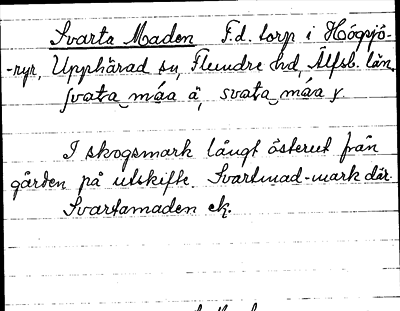 Svarta Maden F.d. torp i Högsjö-
-ryr, Upphärad sn, Flundre hd, Älfsb. län.
svata máa ä, svata máa y
I skogsmark långt österut från
gården på utskifte. Svartmad-mark där.
Svartamaden ek.